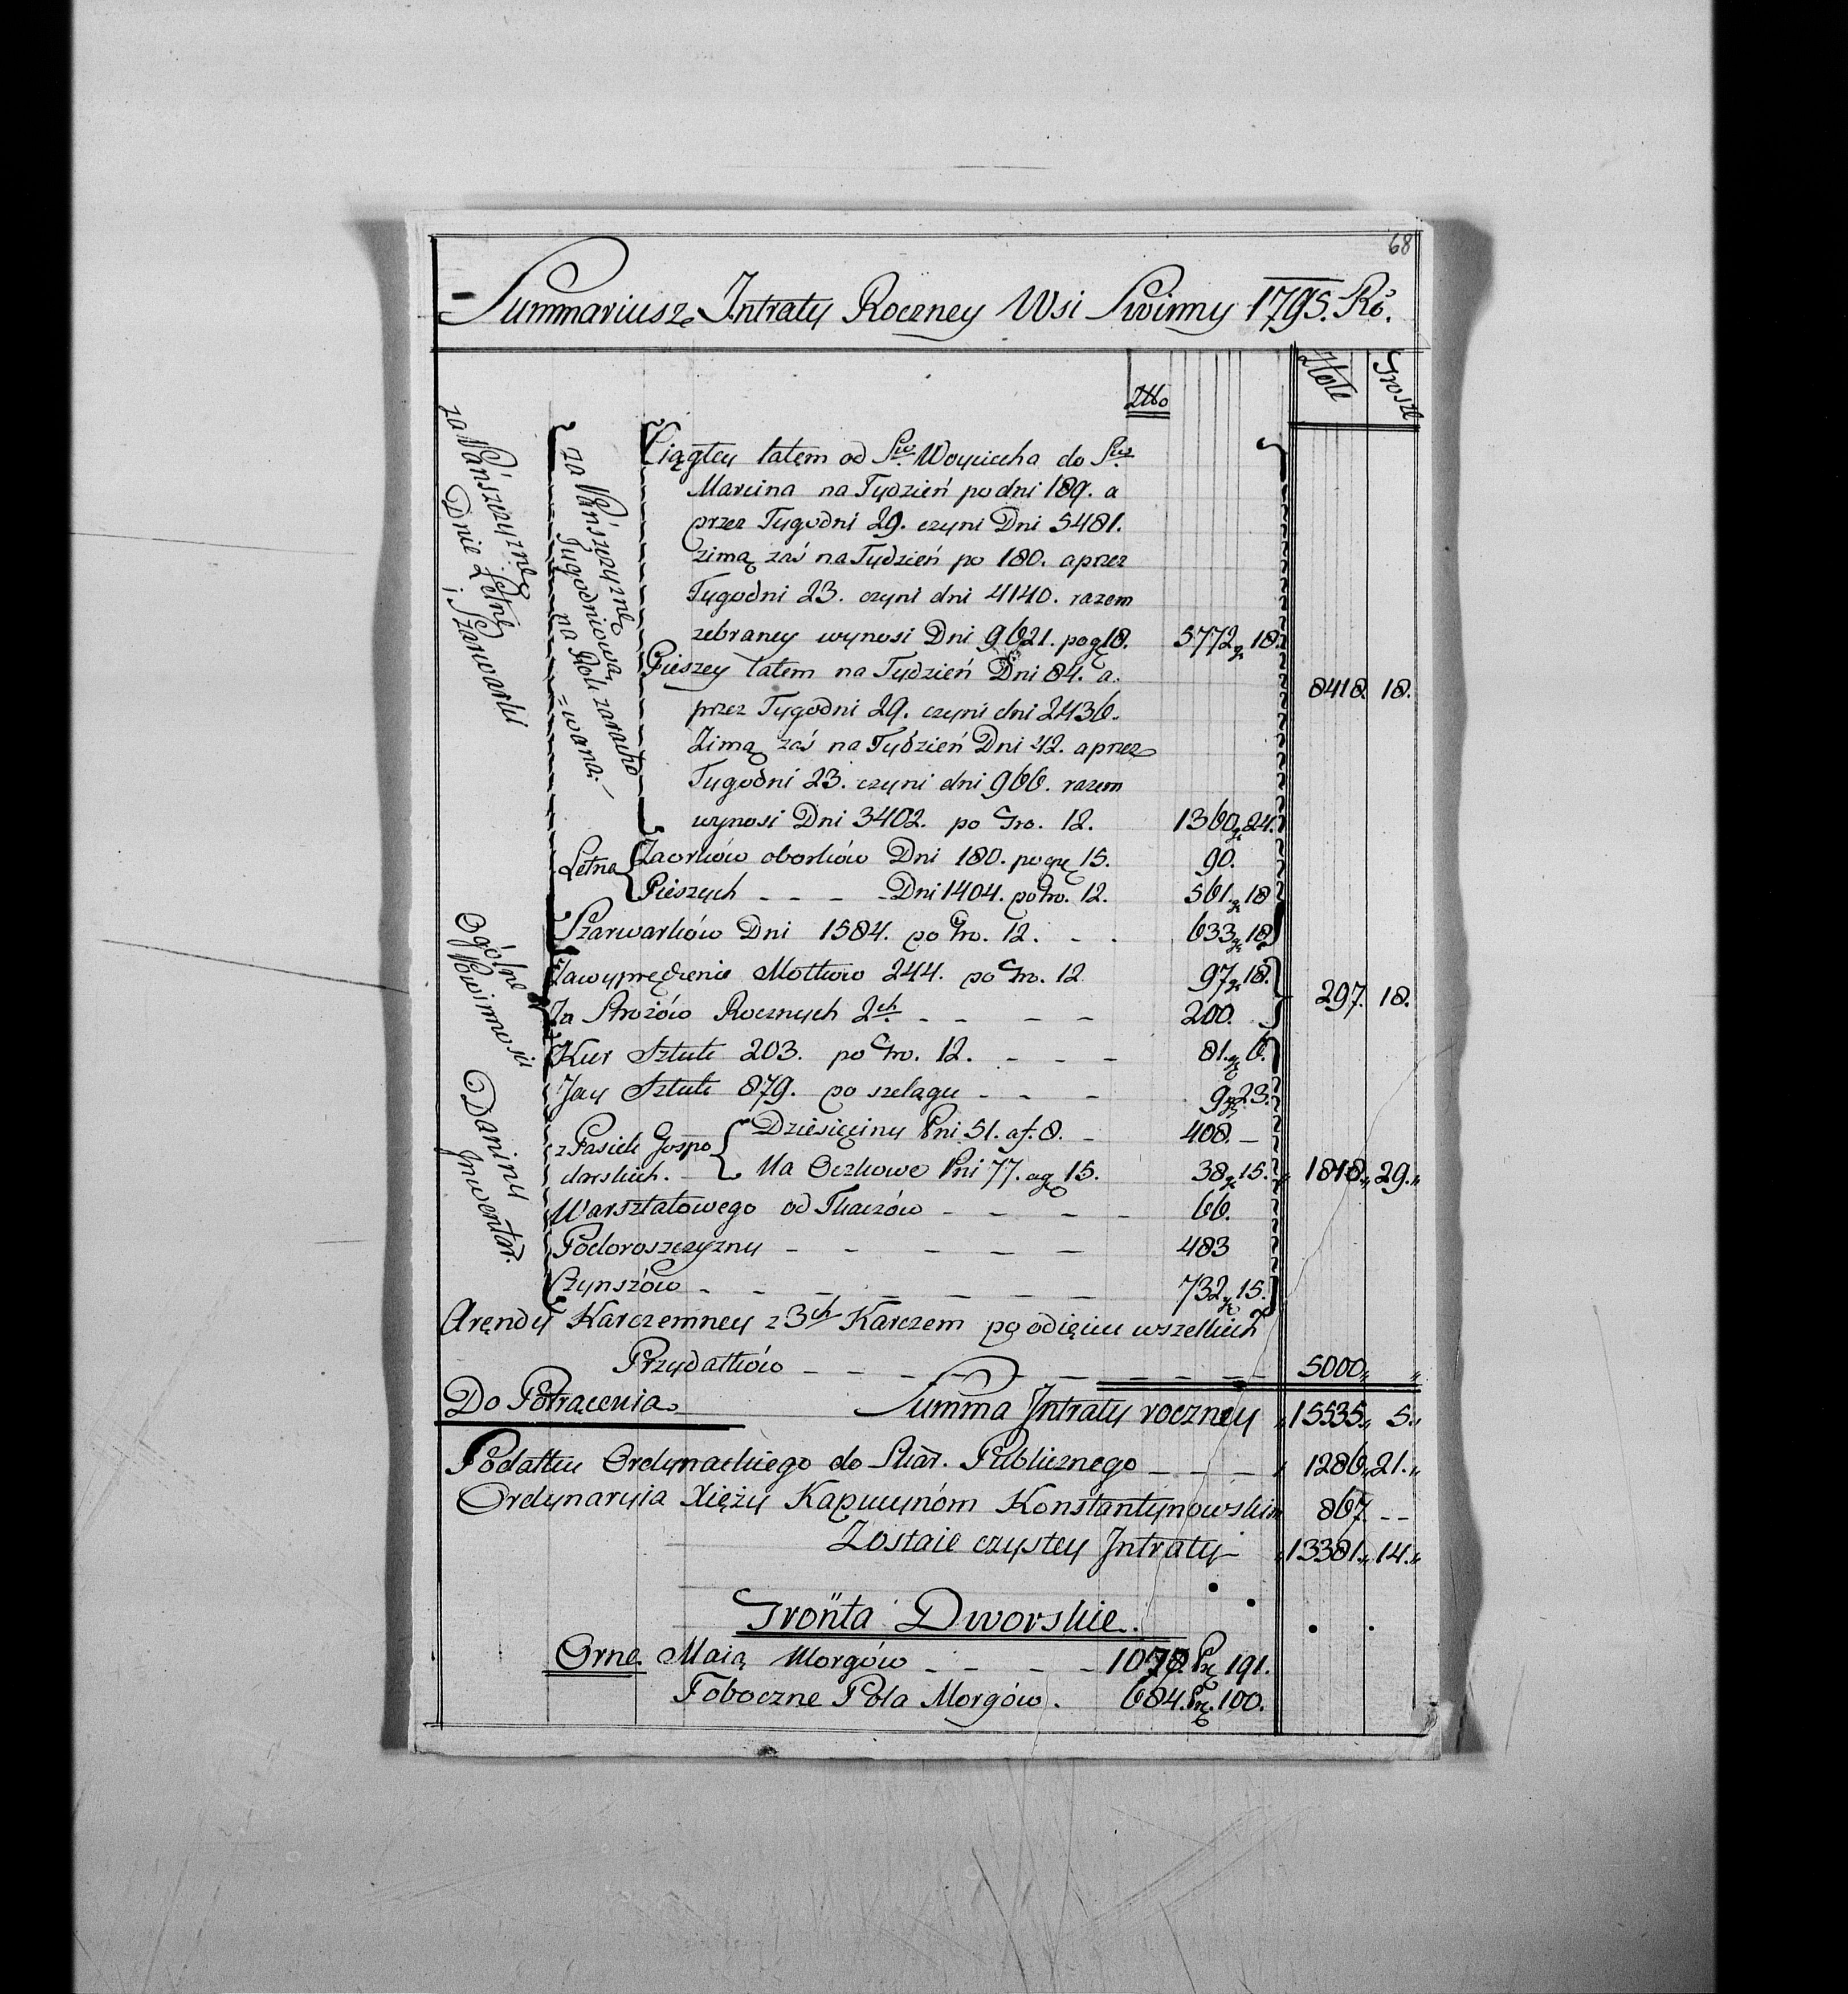 68
Summariusz Intraty Roczney Wsi Swinny 1795. Ro.
Złote Grosze
Złło
za Pańszczyznę Letnę
Dnie Letne
i Szarwarki
za Pańszczyznę
Tygodniową
na Roli zaracho
=wana.
Ciągłey latem od Sw. Woyciecha do Sw.
Marcina na Tydzień po dni 189. a
przez Tygodni 29. czyni Dni 5481.
zimą zaś na Tydzień po 180. a przez
Tygodni 23. czyni dni 4140. razem
zebraney wynosi Dni 9621. po g. 18. 5772 g. 18.
Pieszey latem na Tydzień Dni 84. a. 8418. 18.
przez Tygodni 29. czyni dni 2436.
Zimą zaś na Tydzień Dni 42. a przez
Tygodni 23. czyni dni 966. razem
wynosi Dni 3402. po Gro. 12. 1360 g. 24.
Letne Zaorków oborków Dni 180. po gr. 15. 90.
Pieszych - - - - Dni 1404. po Gro. 12. 561. g. 18
Szarwarków Dni 1584. po Gro. 12. - - 633 g. 18
Ogólne
Powinnosci
Za wyprzędzenie Mottków 244. po Gro. 12 97 g. 18.
297. 18.
Za Strożów Rocznych 2ch. - - - - 200.
Daniny
Inwentar.
Kur Sztuk 203. po Gro. 12. - - - 81. g. 6.
Jay Sztuk 879. po szelągu - - - 9 g. 23.
z Pasiek Gospo
darskich.
Dziesięciny Pni 51. a f. 8. - 408. -
Na Oczkowe Pni 77. a g. 15. 38 g. 15. 1818 „ 29. „
Warsztatowego od Tkaczów - - - - 66.
Podoroszczyzny - - - - - 483
Czynszów - - - - - - - 732 g. 15.
Arędy Karczemney z 3ch Karczem po odięciu wszelkich
Przydatków - - - - - - - - - 5000 „ „
Do Potrącenia. Summa Intraty roczney „ 15535 „ 5. „
Podatku Ordynackiego do Skar. Publicznego - - - 1286 „ 21. „
Ordynaryia Xięży Kapucynóm Konstantynowskim 867 - -
Zostaie czystey Intraty - „ 13381 „ 14. „
Gronta Dworskie.
Orne. Maią Morgów - - - - 1078. Pr. 191.
Poboczne Pola Morgów. 684. Pr. 100.